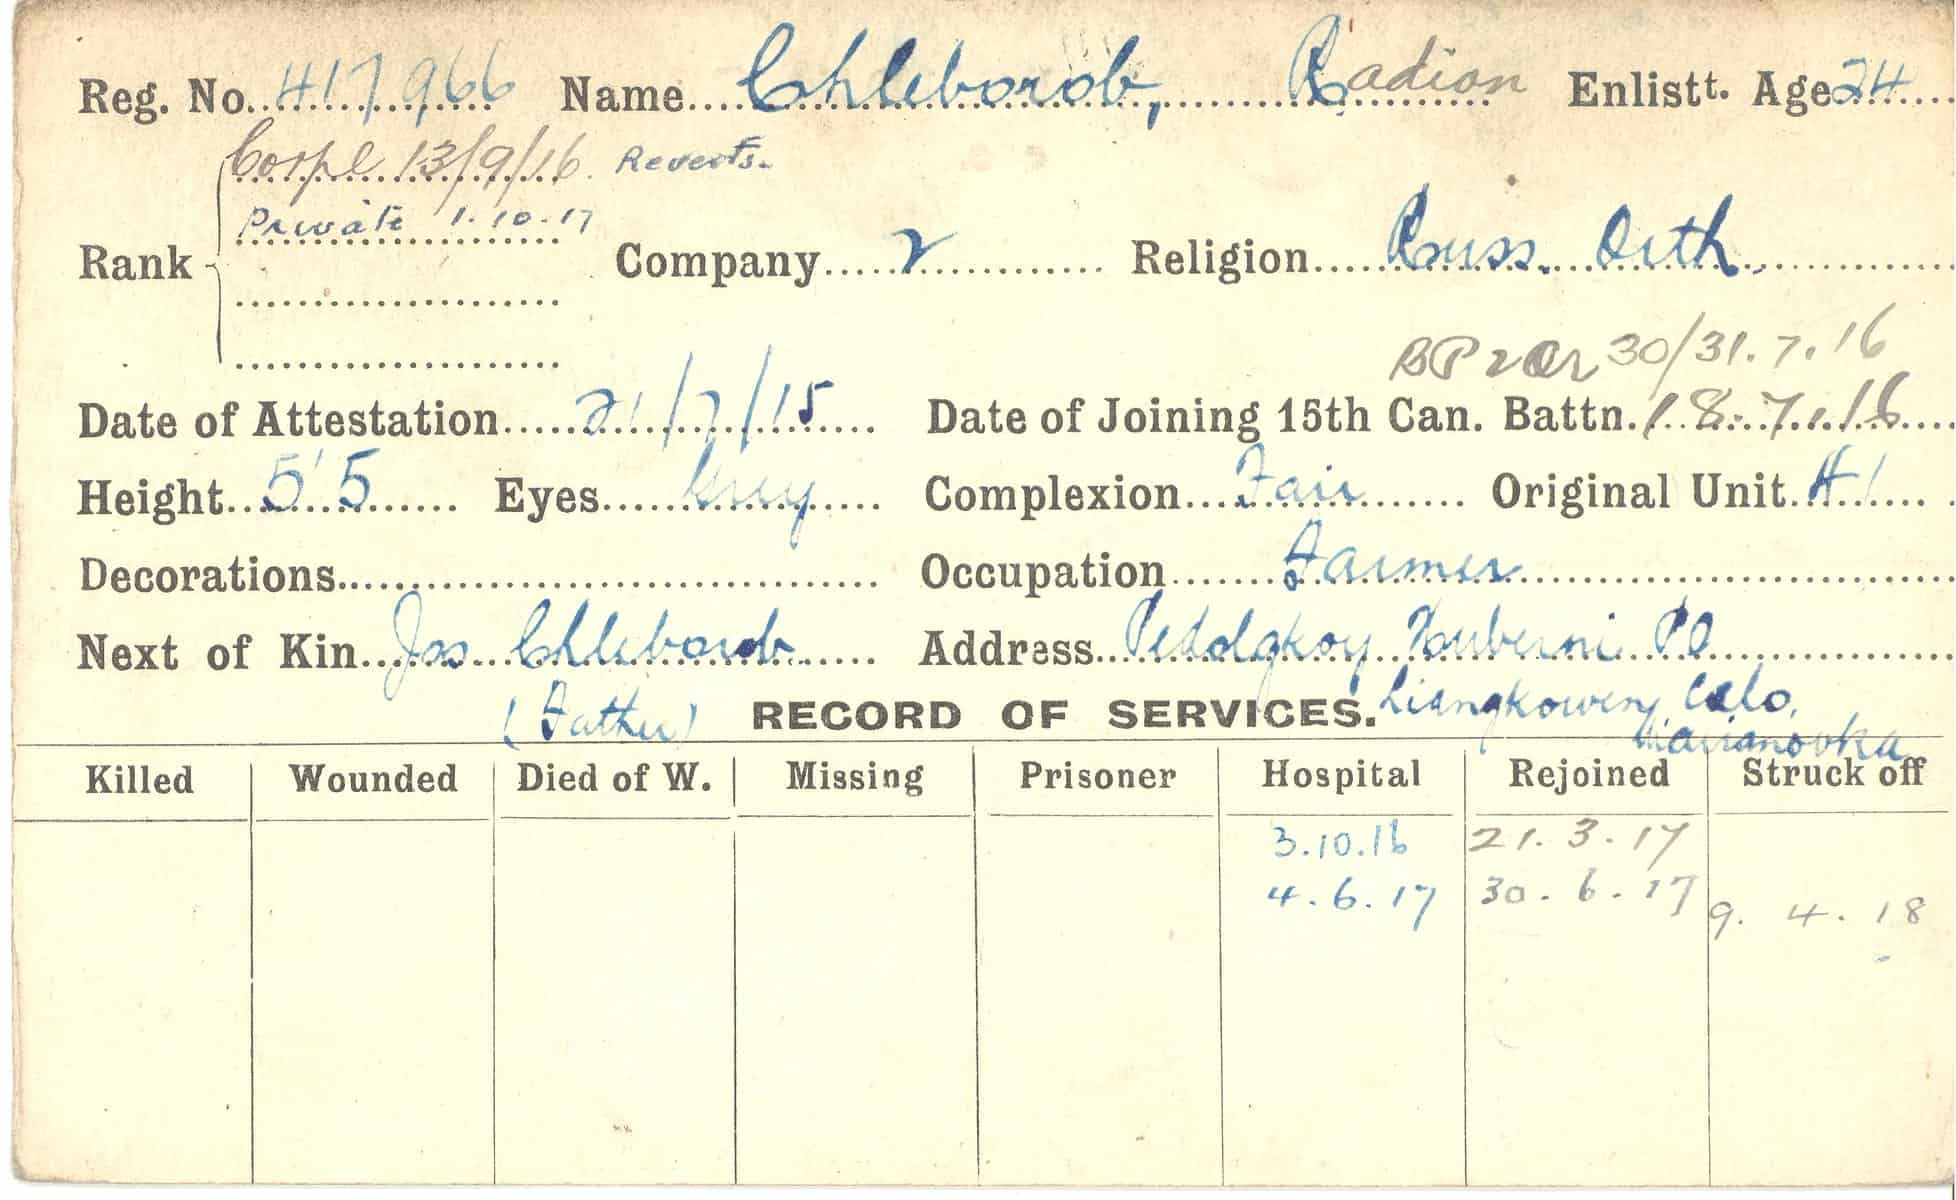 Reg. No. 417,966 Name Chleborob, Radion Enlistt. Age 24
Corpl 13/9/16. Reverts.
Private 1.10.17
Rank Company 2 Religion Russ. Orth.
30/31.7.16
Date of Attestation 21/7/15 Date of Joining 15th Can. Battn. 18.7.16
Height 5'5 Eyes Grey Complexion Fair Original Unit 41
Decorations Occupation Farmer
Next of Kin Jos Chleborob Address Huberni PO
(Father) RECORD OF SERVICES. Celo,
Marianovka
Killed Wounded Died of W. Missing Prisoner Hospital Rejoined Struck off
3.10.16 21.3.17
4.6.17 30.6.17
9.4.18